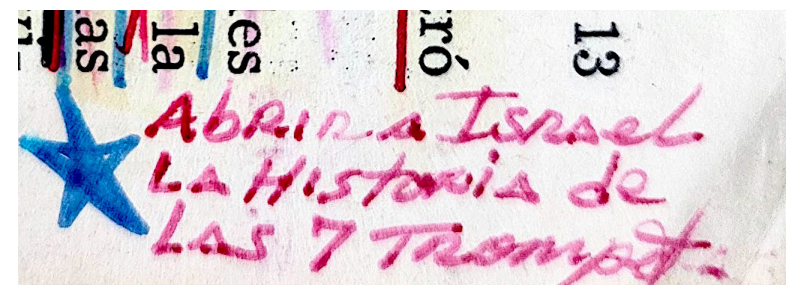 as
la
es
ró
13
Abrir a Israel
La Historia de
Las 7 Trompet